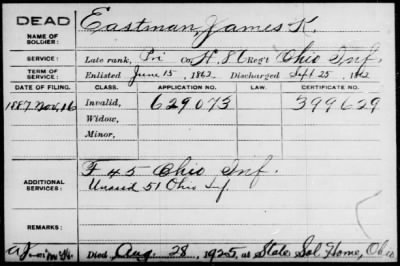 DEAD
NAME OF SOLDIER:
Eastman, James K.
SERVICE:
Late rank, Pri Co. H. 86 Reg't Ohio Inf.
TERM OF SERVICE:
Enlisted June 15, 1862 Discharged Sept 25, 1862
DATE OF FILING. CLASS. APPLICATION NO. LAW. CERTIFICATE NO.
1887 Nov, 16 Invalid, 629073 399629
Widow,
Minor,
ADDITIONAL SERVICES:
F 45 Ohio Inf.
51 Ohio Inf.
REMARKS:
Died Aug. 28, 1925, at State Sol Home, Ohio